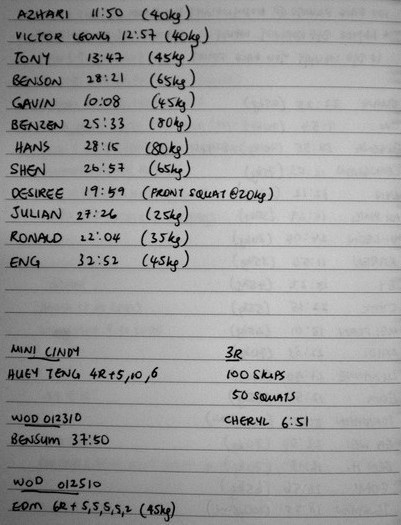 AZHARI 11:50 (40kg)
VICTOR LEONG 12:57 (40kg)
TONY 13:47 (45kg)
BENSON 28:21 (65kg)
GAVIN 10:08 (45kg)
BENZEN 25:33 (80kg)
HANS 28:15 (80kg)
SHEN 26:57 (65kg)
DESIREE 19:59 (FRONT SQUAT @20kg)
JULIAN 27:26 (25kg)
RONALD 22:04 (35kg)
ENG 32:52 (45kg)
MINI CINDY
HUEY TENG 4R+5,10,6
WOD 012310
BENSUM 37:50
WOD 012510
EDM 6R+5,5,5,5,2 (45kg)
3R
100 SKIPS
50 SQUATS
CHERYL 6:51